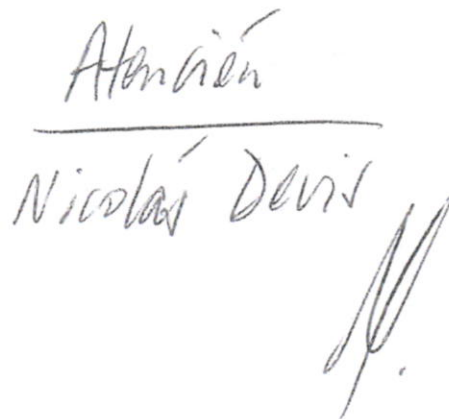 Atención
Nicolás Devis